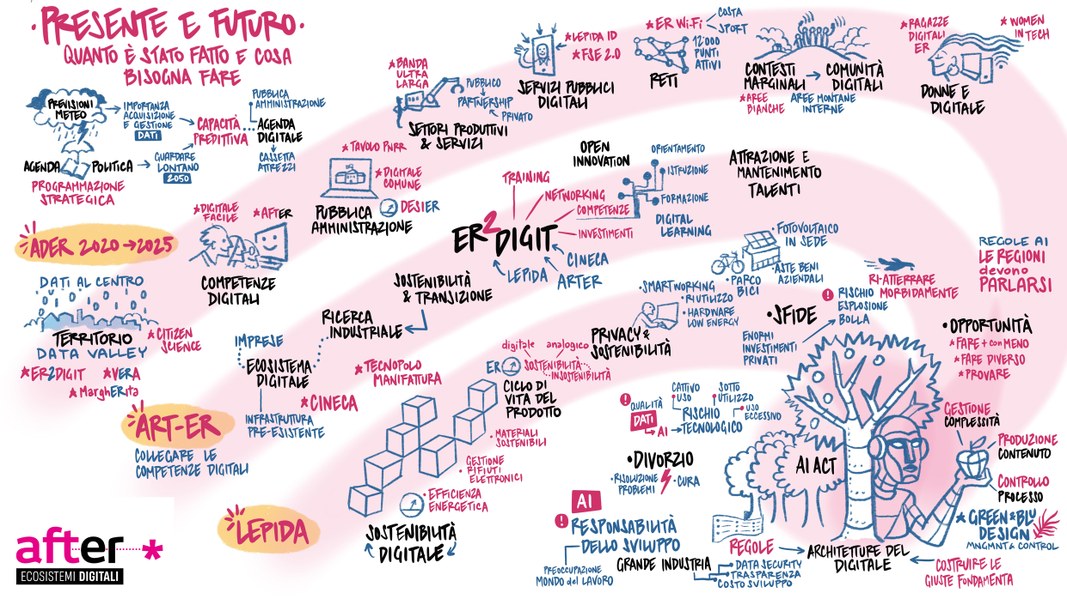 ·PRESENTE E FUTURO·
QUANTO È STATO FATTO E COSA
BISOGNA FARE
PREVISIONI
METEO
IMPORTANZA
ACQUISIZIONE
E GESTIONE
DATI
CAPACITÀ
PREDITTIVA
PUBBLICA
AMMINISTRAZIONE
AGENDA
DIGITALE
CASSETTA
ATTREZZI
AGENDA
POLITICA
GUARDARE
LONTANO
2050
PROGRAMMAZIONE
STRATEGICA
ADER 2020→2025
DATI AL CENTRO
TERRITORIO
DATA VALLEY
*CITIZEN
SCIENCE
*ER2DIGIT
*VERA
*MARGhERita
*DIGITALE
FACILE
*AFTER
COMPETENZE
DIGITALI
*TAVOLO PNRR
*DIGITALE
COMUNE
PUBBLICA
AMMINISTRAZIONE
DESIER
*BANDA
ULTRA
LARGA
PUBBLICO
PARTNERSHIP
PRIVATO
SETTORI PRODUTTIVI
& SERVIZI
*LEPIDA ID
*FSE 2.0
SERVIZI PUBBLICI
DIGITALI
*ER Wi-Fi
COSTA
SPORT
12'000
PUNTI
ATTIVI
RETI
CONTESTI
MARGINALI
→ COMUNITÀ
DIGITALI
*AREE
BIANCHE
AREE MONTANE
INTERNE
*RAGAZZE
DIGITALI
ER
*WOMEN
IN TECH
DONNE E
DIGITALE
ART-ER
COLLEGARE LE
COMPETENZE DIGITALI
IMPRESE
ECOSISTEMA
DIGITALE
INFRASTRUTTURA
PRE-ESISTENTE
*CINECA
RICERCA
INDUSTRIALE
SOSTENIBILITÀ
& TRANSIZIONE
*TECNOPOLO
MANIFATTURA
ER2DIGIT
TRAINING
NETWORKING
COMPETENZE
INVESTIMENTI
CINECA
ARTER
LEPIDA
OPEN
INNOVATION
ORIENTAMENTO
ISTRUZIONE
FORMAZIONE
DIGITAL
LEARNING
ATTRAZIONE E
MANTENIMENTO
TALENTI
LEPIDA
SOSTENIBILITÀ
DIGITALE
• EFFICIENZA
ENERGETICA
• GESTIONE
RIFIUTI
ELETTRONICI
• MATERIALI
SOSTENIBILI
CICLO DI
VITA DEL
PRODOTTO
ER
digitale
analogico
SOSTENIBILITÀ
INSOSTENIBILITÀ
PRIVACY &
SOSTENIBILITÀ
• SMARTWORKING
• RIUTILIZZO
• HARDWARE
LOW ENERGY
• PARCO
BICI
• FOTOVOLTAICO
IN SEDE
• ASTE BENI
AZIENDALI
• SFIDE
ENORMI
INVESTIMENTI
PRIVATI
! RISCHIO
ESPLOSIONE
BOLLA
RI-ATTERRARE
MORBIDAMENTE
REGOLE AI
LE REGIONI
devono
PARLARSI
• OPPORTUNITÀ
*FARE + con MENO
*FARE DIVERSO
*PROVARE
! QUALITÀ
DATI
→ AI
RISCHIO
TECNOLOGICO
CATTIVO
USO
SOTTO
UTILIZZO
USO
ECCESSIVO
• DIVORZIO
• RISOLUZIONE
PROBLEMI
• CURA
AI
! RESPONSABILITÀ
DELLO SVILUPPO
PREOCCUPAZIONE
MONDO del LAVORO
GRANDE INDUSTRIA
DATA SECURITY
TRASPARENZA
COSTO SVILUPPO
AI ACT
REGOLE → ARCHITETTURE DEL
DIGITALE
GESTIONE
COMPLESSITÀ
PRODUZIONE
CONTENUTO
CONTROLLO
PROCESSO
*GREEN&BLU
DESIGN
MNGMNT & CONTROL
COSTRUIRE LE
GIUSTE FONDAMENTA
after *
ECOSISTEMI DIGITALI